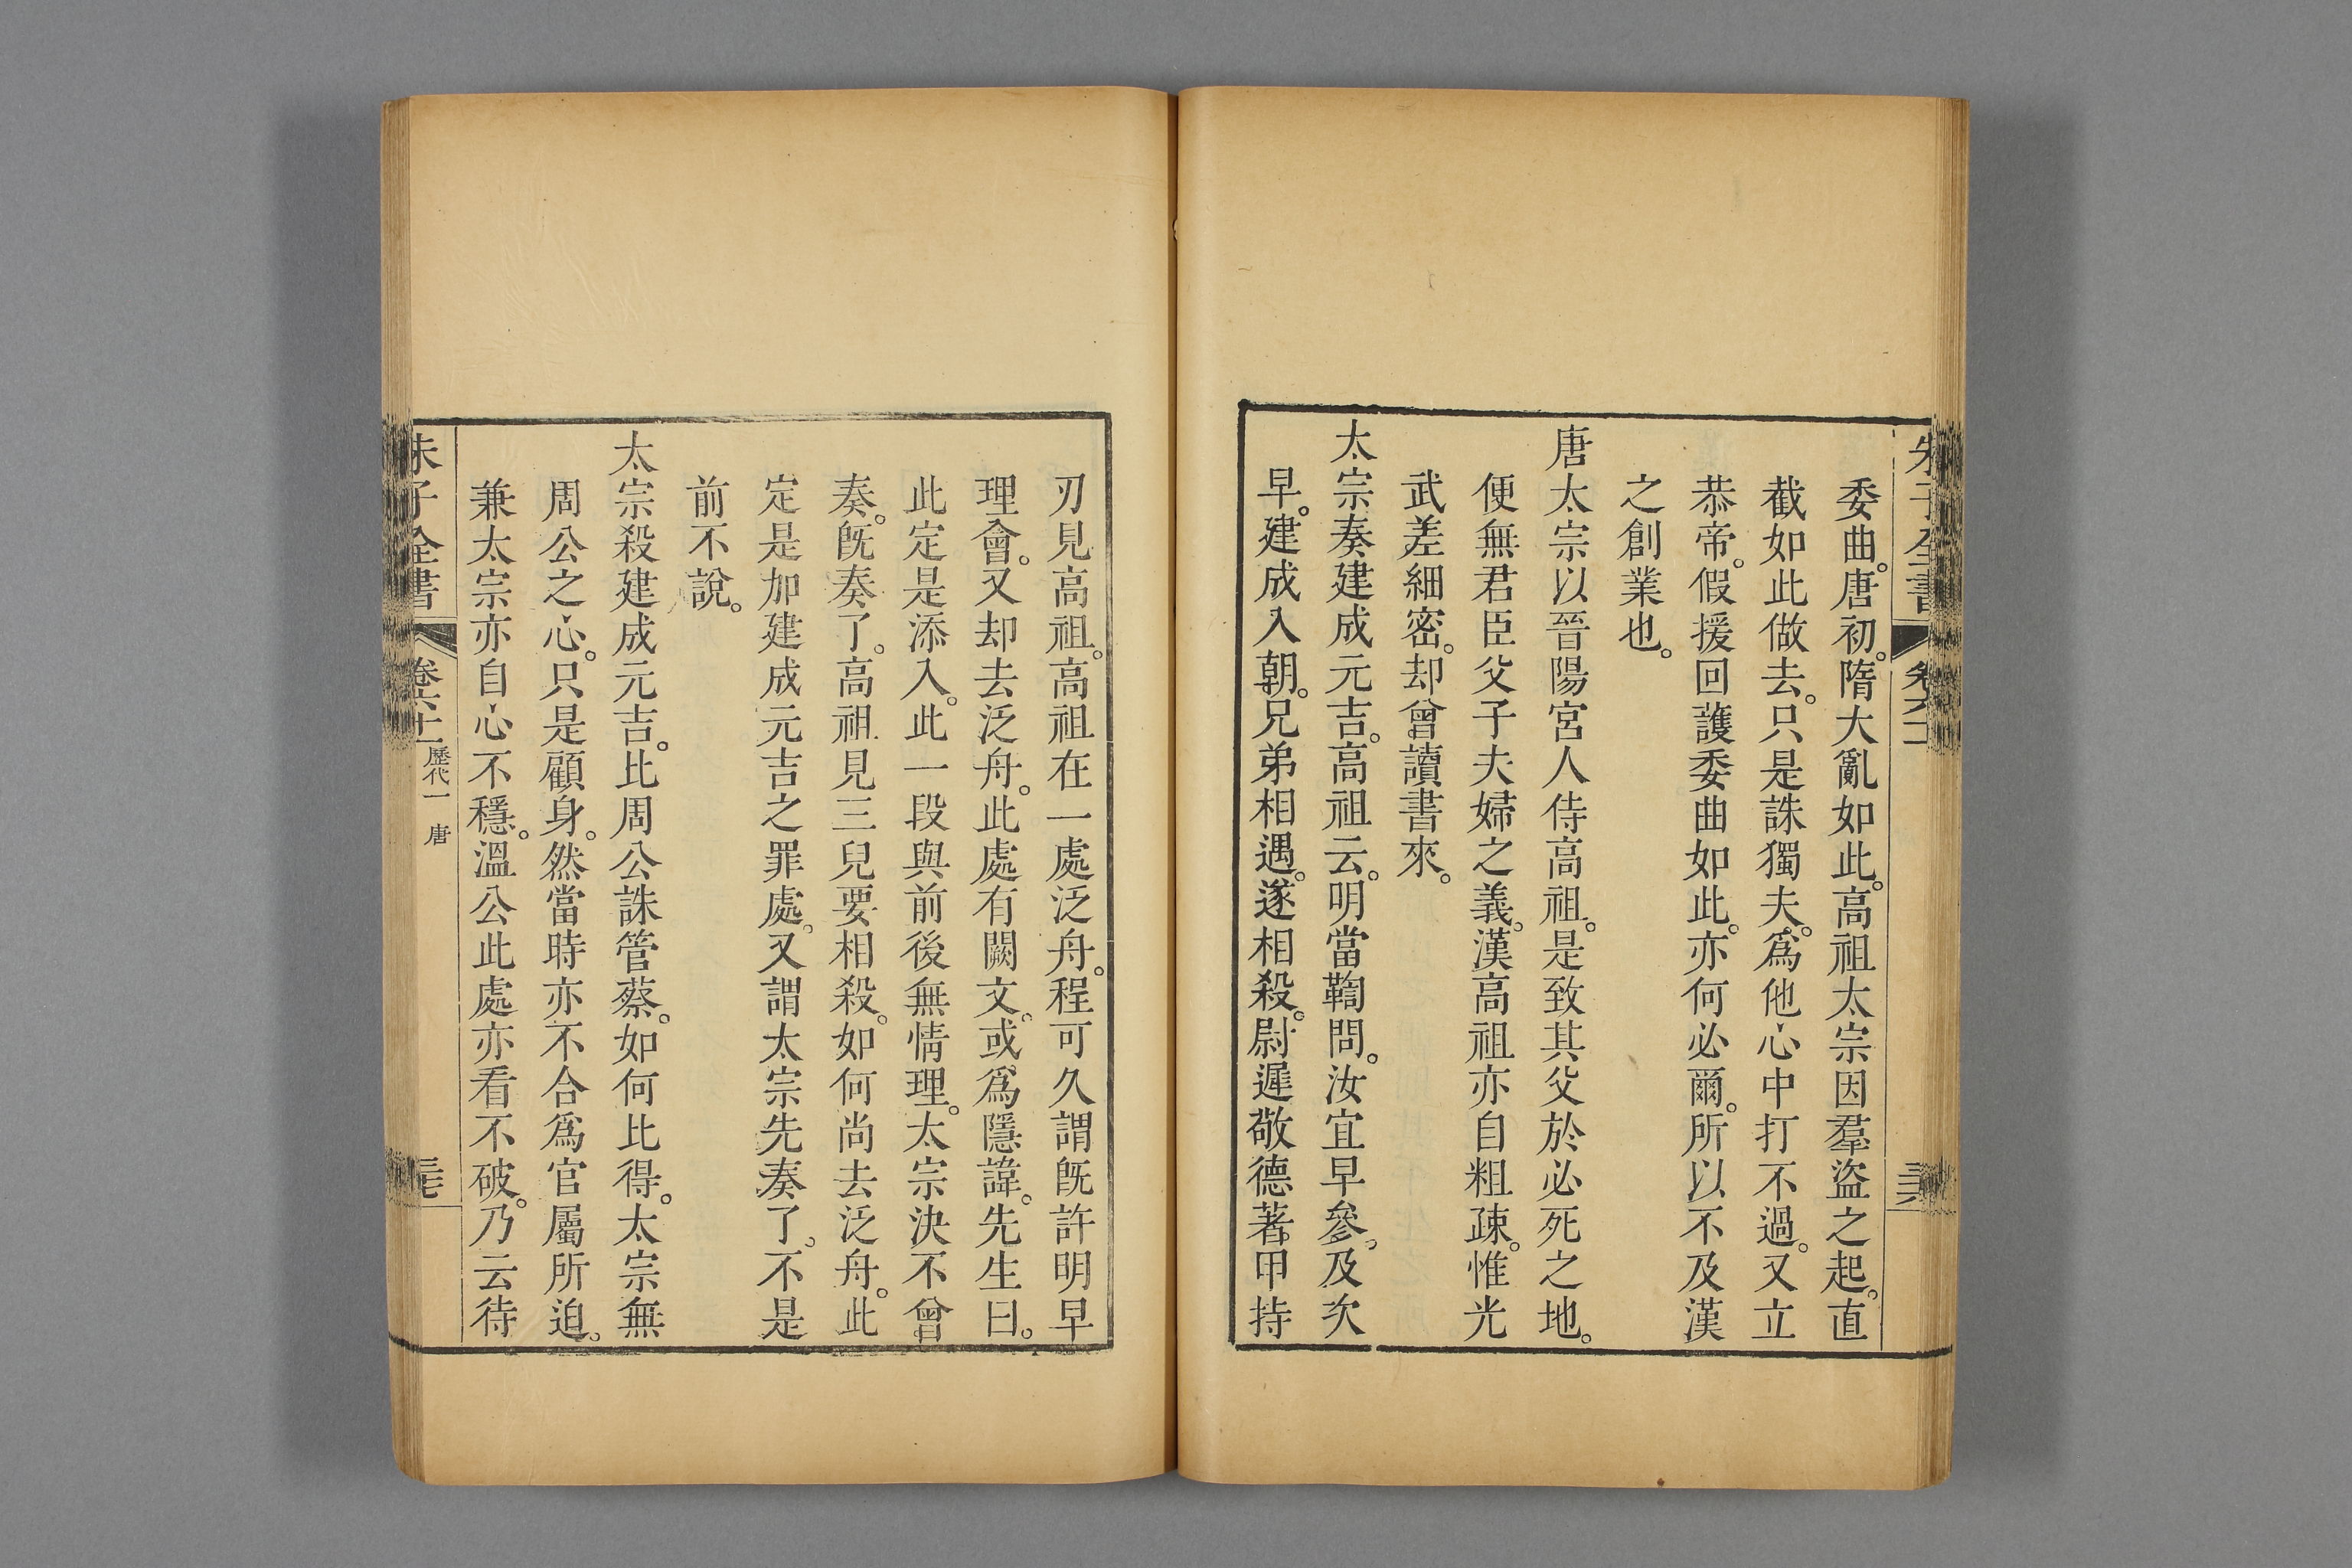 朱子全書 卷六十一
委曲。唐初。隋大亂如此。高祖太宗因羣盜之起。直
截如此做去。只是誅獨夫。爲他心中打不過。又立
恭帝。假援回護委曲如此。亦何必爾。所以不及漢
之創業也。
唐太宗以晉陽宮人侍高祖。是致其父於必死之地。
便無君臣父子夫婦之義。漢高祖亦自粗疎。惟光
武差細密。却曾讀書來。
太宗奏建成元吉。高祖云。明當鞫問。汝宜早參。及次
早。建成入朝。兄弟相遇。遂相殺。尉遲敬德著甲持
刃見高祖。高祖在一處泛舟。程可久謂既許明早
理會。又却去泛舟。此處有闕文。或爲隱諱。先生曰。
此定是添入。此一段與前後無情理。太宗決不曾
奏。既奏了。高祖見三兒要相殺。如何尚去泛舟。此
定是加建成元吉之罪處。又謂太宗先奏了。不是
前不說。
太宗殺建成元吉。比周公誅管蔡。如何比得。太宗無
周公之心。只是顧身。然當時亦不合爲官屬所迫。
兼太宗亦自心不穩。溫公此處亦看不破。乃云待
朱子全書 卷六十一 歷代一 唐